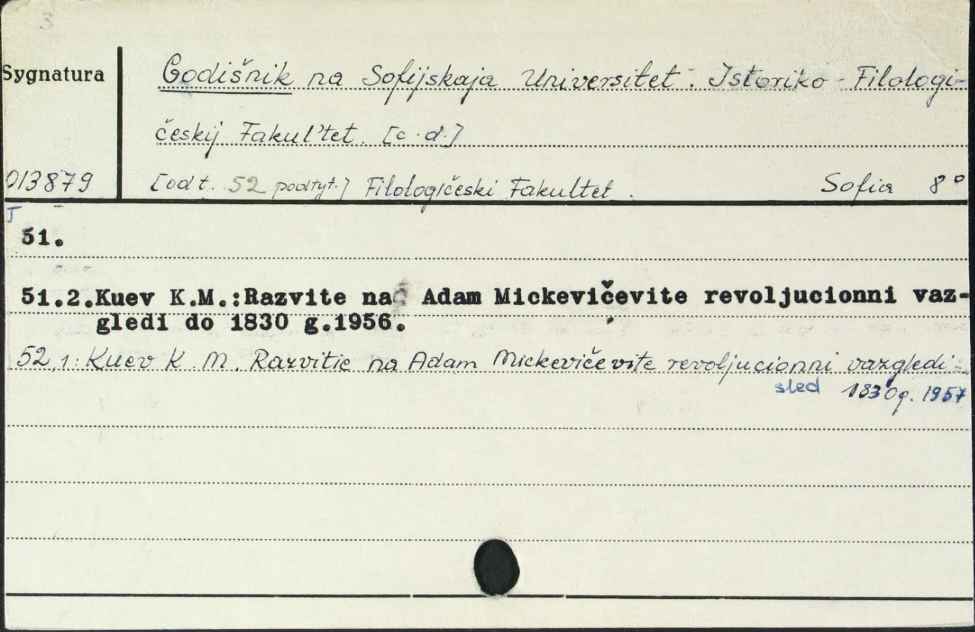 3
Sygnatura
Godišnik na Sofijskaja Universitet. Istoriko-Filologi-
českij Fakul'tet. [c.d.]
013879
[od t. 52 podtyt.] Filologičeski Fakultet. Sofia 8°
I
51.
51.2.Kuev K.M.:Razvite na Adam Mickevičevite revoljucionni vaz-
gledi do 1830 g.1956.
52,1: Kuev K. M. Razvitie na Adam Mickevičevite revoljucionni vazgledi
sled 1830g. 1957